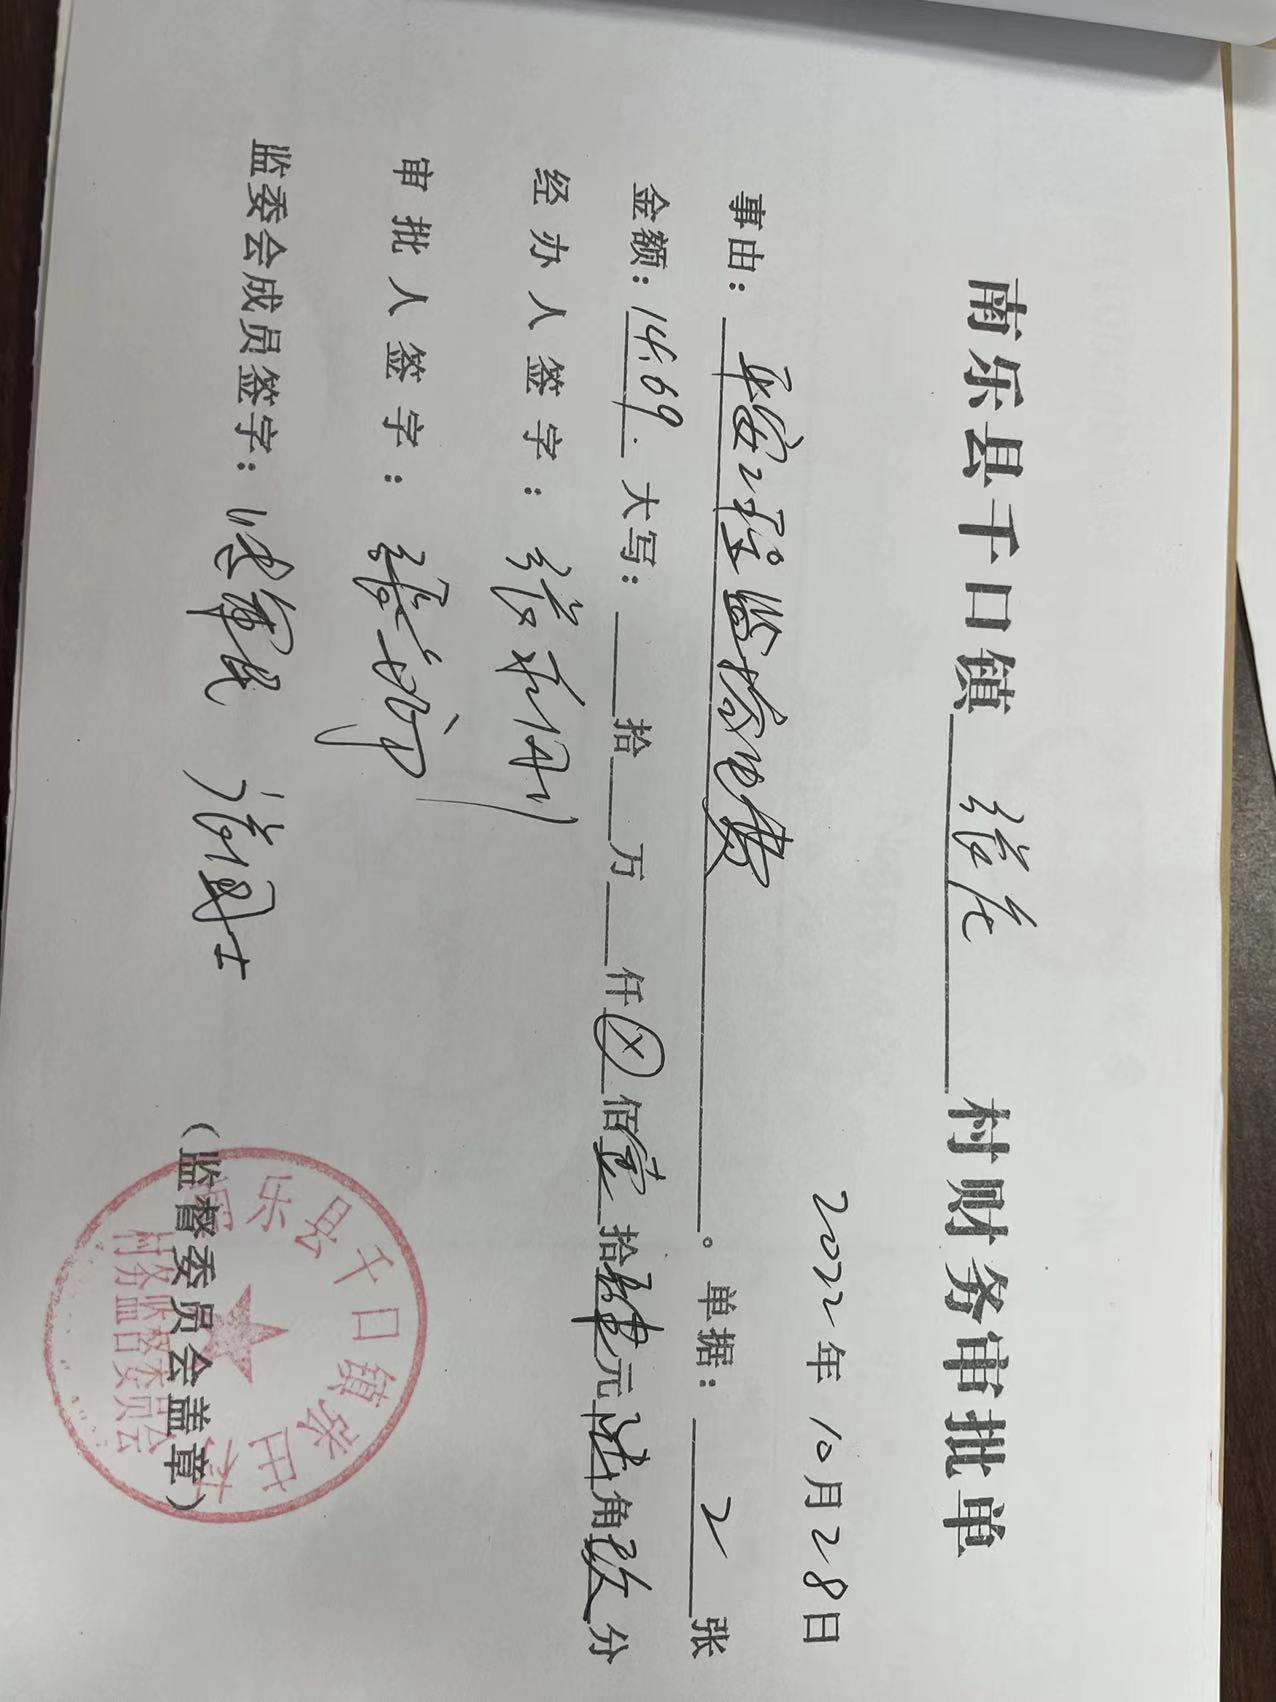 南乐县千口镇 张庄 村财务审批单
2022年10月28日
事由:平安工程监控电费。单据:2张
金额:14.69. 大写:拾万仟⊗佰壹拾肆元陆角玖分
经办人签字:张利
审批人签字:张
监委会成员签字:
(监督委员会盖章)
南乐县千口镇张庄村
村务监督委员会